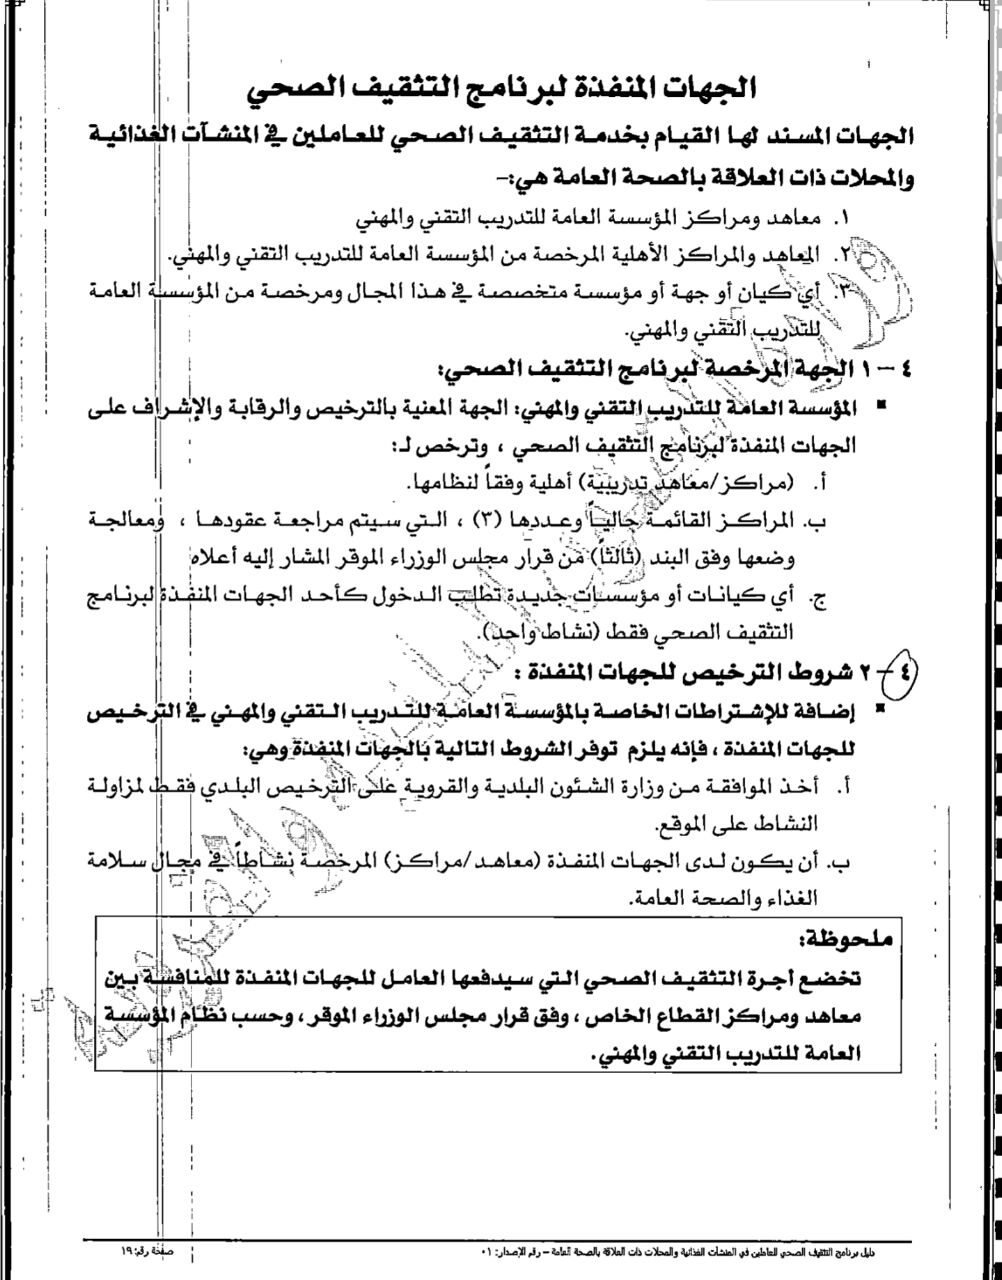 الجهات المنفذة لبرنامج التثقيف الصحي
الجهات المسند لها القيام بخدمة التثقيف الصحي للعاملين في المنشآت الغذائية
والمحلات ذات العلاقة بالصحة العامة هي:-
١. معاهد ومراكز المؤسسة العامة للتدريب التقني والمهني
٢. المعاهد والمراكز الأهلية المرخصة من المؤسسة العامة للتدريب التقني والمهني.
٣. أي كيان أو جهة أو مؤسسة متخصصة في هذا المجال ومرخصة من المؤسسة العامة
للتدريب التقني والمهني.
٤ – ١ الجهة المرخصة لبرنامج التثقيف الصحي:
▪ المؤسسة العامة للتدريب التقني والمهني: الجهة المعنية بالترخيص والرقابة والإشراف على
الجهات المنفذة لبرنامج التثقيف الصحي ، وترخص لـ:
أ. (مراكز/معاهد تدريبية) أهلية وفقاً لنظامها.
ب. المراكز القائمة حالياً وعددها (٣) ، التي سيتم مراجعة عقودها ، ومعالجة
وضعها وفق البند (ثالثاً) من قرار مجلس الوزراء الموقر المشار إليه أعلاه
ج. أي كيانات أو مؤسسات جديدة تطلب الدخول كأحد الجهات المنفذة لبرنامج
التثقيف الصحي فقط (نشاط واحد).
٤ – ٢ شروط الترخيص للجهات المنفذة :
▪ إضافة للإشتراطات الخاصة بالمؤسسة العامة للتدريب التقني والمهني في الترخيص
للجهات المنفذة ، فإنه يلزم توفر الشروط التالية بالجهات المنفذة وهي:
أ. أخذ الموافقة من وزارة الشئون البلدية والقروية على الترخيص البلدي فقط لمزاولة
النشاط على الموقع.
ب. أن يكون لدى الجهات المنفذة (معاهد/مراكز) المرخصة نشاطاً في مجال سلامة
الغذاء والصحة العامة.
ملحوظة:
تخضع أجرة التثقيف الصحي التي سيدفعها العامل للجهات المنفذة للمنافسة بين
معاهد ومراكز القطاع الخاص ، وفق قرار مجلس الوزراء الموقر ، وحسب نظام المؤسسة
العامة للتدريب التقني والمهني.
دليل برنامج التثقيف الصحي للعاملين في المنشآت الغذائية والمحلات ذات العلاقة بالصحة العامة – رقم الإصدار: ٠١
صفحة رقم: ١٩